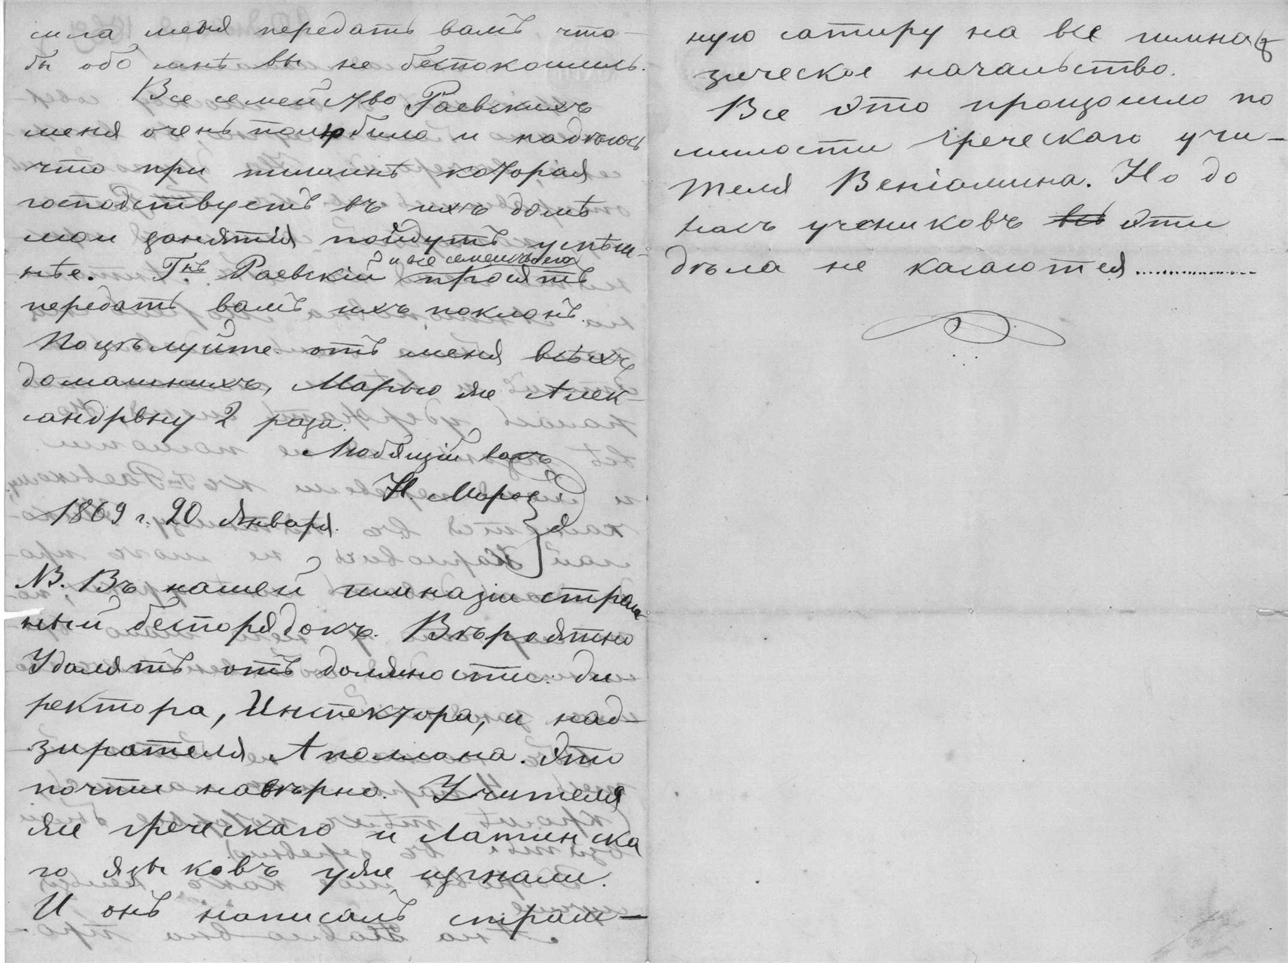 сила меня передать вамъ что-
бы обо мнѣ вы не беспокоились.
Все семейство Раевскихъ
меня очень полюбило и надѣюсь
что при тишинѣ которая
господствуетъ въ ихъ домѣ
мои занятія пойдутъ успѣш-
нѣе. Гнъ. Раевскій и все семейство просятъ
передать вамъ ихъ поклонъ.
Поцѣлуйте отъ меня всѣхъ
домашнихъ, Марью же Алек-
сандрвну 2 раза.
Любящій васъ
Н. Мороз
1869 г. 20 Января.
NB. Въ нашей гимназіи стран-
ный беспорядокъ. Вѣроятно
Удалятъ отъ должности: ди
ректора, Инспектора, и над-
зирателя Аполлона. Это
почти навѣрно. Учителя
же Греческаго и Латинска
го языковъ уже изгнали.
И онъ написалъ страш-
ную сатиру на все гимна
зическое начальство.
Все это произошло по
милости Греческаго учи-
теля Веніамина. Но до
насъ учениковъ эти
дѣла не касаются...............